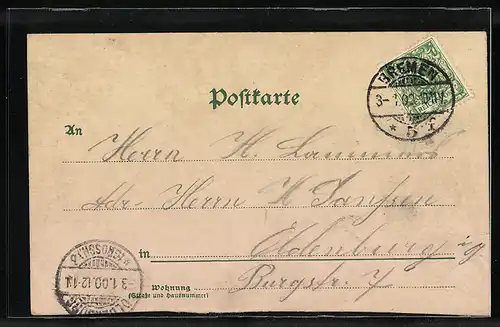 BREMEN
3-1.00.
* 5 f
Postkarte
An
Herrn H.
Adr. Herrn H. Janssen
in Oldenburg i/g
Wohnung Burgstr. 7
(Straße und Hausnummer)
3.1.00.12-1N